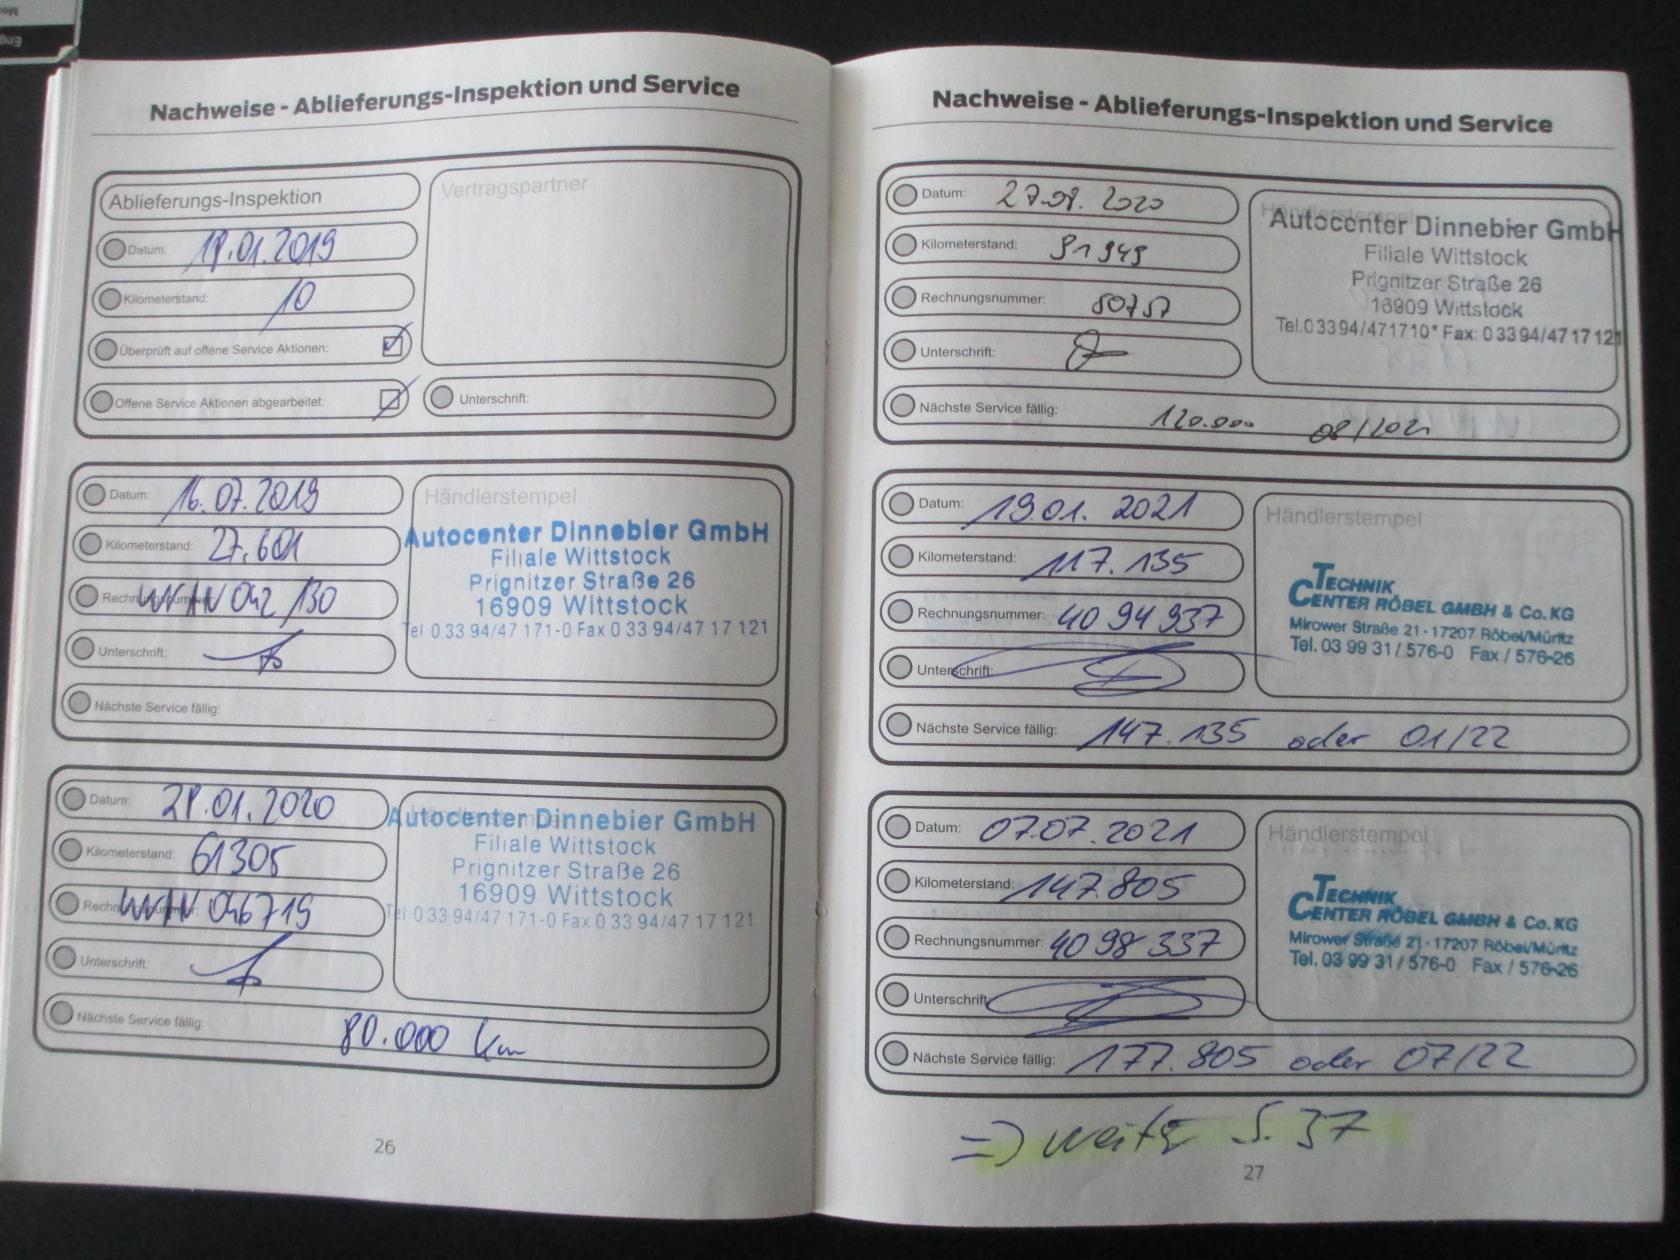 Nachweise - Ablieferungs-Inspektion und Service
Ablieferungs-Inspektion
Vertragspartner
Datum: 18.01.2019
Kilometerstand: 10
Überprüft auf offene Service Aktionen:
Offene Service Aktionen abgearbeitet:
Unterschrift:
Datum: 16.07.2019
Kilometerstand: 27.601
Rechnungsnummer: WIN 042130
Unterschrift:
Nächste Service fällig:
Händlerstempel
Autocenter Dinnebier GmbH
Filiale Wittstock
Prignitzer Straße 26
16909 Wittstock
Tel 0 33 94/47 171-0 Fax 0 33 94/47 17 121
Datum: 28.01.2020
Kilometerstand: 61305
Rechnungsnummer: WIN 046719
Unterschrift:
Nächste Service fällig: 80.000 km
Händlerstempel
Autocenter Dinnebier GmbH
Filiale Wittstock
Prignitzer Straße 26
16909 Wittstock
Tel 0 33 94/47 171-0 Fax 0 33 94/47 17 121
26
Nachweise - Ablieferungs-Inspektion und Service
Datum: 27.08. 2020
Kilometerstand: 91949
Rechnungsnummer: 50757
Unterschrift:
Nächste Service fällig: 120.000 08/2021
Händlerstempel
Autocenter Dinnebier GmbH
Filiale Wittstock
Prignitzer Straße 26
16909 Wittstock
Tel.03394/471710* Fax: 03394/4717121
Datum: 19.01. 2021
Kilometerstand: 117.135
Rechnungsnummer: 4094937
Unterschrift:
Nächste Service fällig: 147.135 oder 01/22
Händlerstempel
TECHNIK
CENTER RÖBEL GMBH & Co. KG
Mirower Straße 21 · 17207 Röbel/Müritz
Tel. 03 99 31 / 576-0 Fax / 576-26
Datum: 07.07.2021
Kilometerstand: 147.805
Rechnungsnummer: 4098337
Unterschrift:
Nächste Service fällig: 177.805 oder 07/22
Händlerstempel
TECHNIK
CENTER RÖBEL GMBH & Co. KG
Mirower Straße 21 · 17207 Röbel/Müritz
Tel. 03 99 31 / 576-0 Fax / 576-26
=> weiter S. 37
27